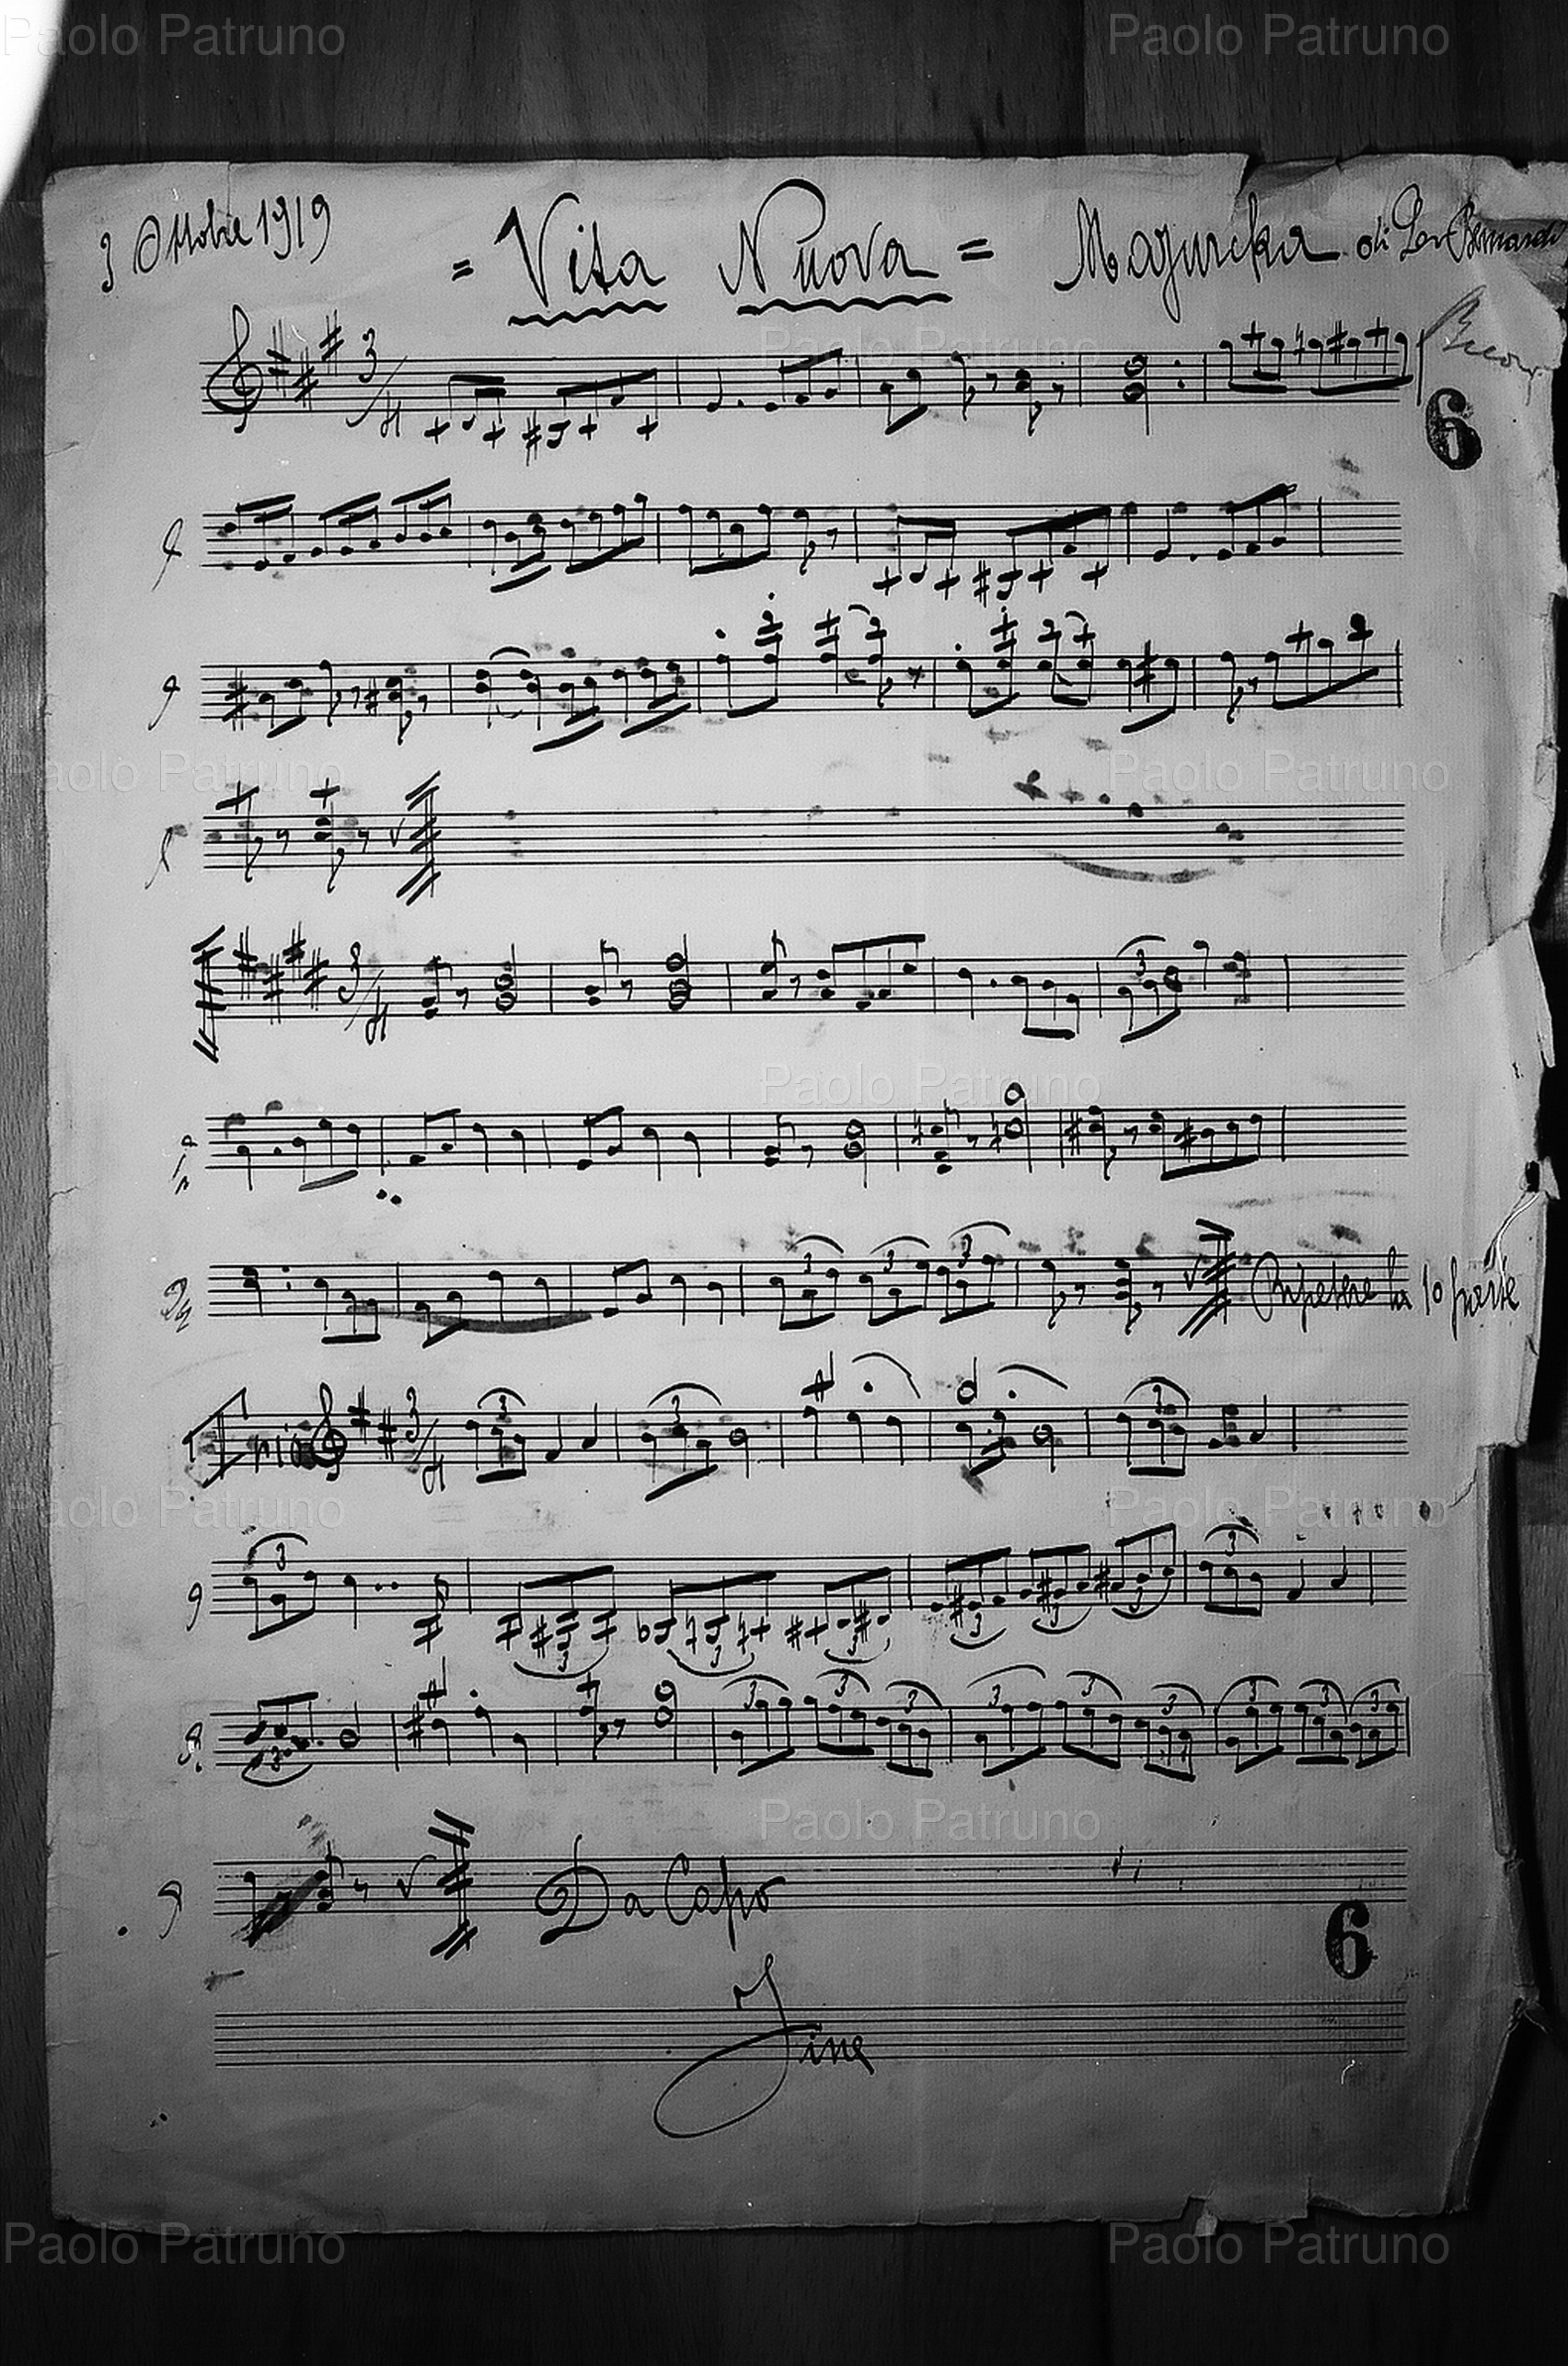 Paolo Patruno Paolo Patruno
3 Ottobre 1919 = Vita Nuova = Mazurcka di
Paolo Patruno
3
4
6
Paolo Patruno Paolo Patruno
3
4
3
Paolo Patruno
3 3 3 Ripetere la 1o parte
Trio 3
4
3 3 3
Paolo Patruno Paolo Patruno
3 3 3 3 3 3 3 3
3 3 3 3 3 3 3 3 3 3
Paolo Patruno
Da Capo
6
Fine
Paolo Patruno Paolo Patruno